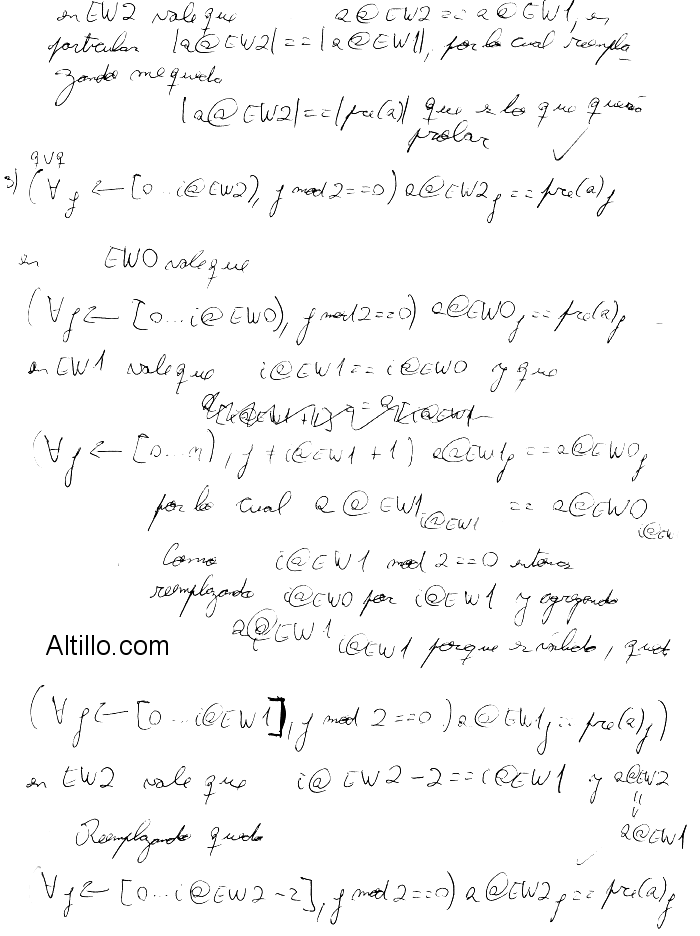 en EW2 vale que a@EW2 == a@EW1, en
particular |a@EW2| == |a@EW1|, por lo cual reempla-
zando me queda
|a@EW2| == |pre(a)| que es lo que quería
probar
qvq
3) (∀j ← [0...i@EW2), j mod 2==0) a@EW2_j == pre(a)_j
en EW0 vale que
(∀j ← [0...i@EW0), j mod 2==0) a@EW0_j == pre(a)_j
en EW1 vale que i@EW1 == i@EW0 y que
(∀j ← [0...n), j ≠ i@EW1 + 1) a@EW1_j == a@EW0_j
por lo cual a@EW1_i@EW1 == a@EW0_i@EW
Como i@EW1 mod 2==0 entonces
reemplazando i@EW0 por i@EW1 y agregando
a@EW1_i@EW1 porque es válido, queda
Altillo.com
(∀j ← [0...i@EW1], j mod 2==0) a@EW1_j == pre(a)_j)
en EW2 vale que i@EW2-2 == i@EW1 y a@EW2
==
a@EW1
Reemplazando queda
∀j ← [0...i@EW2-2], j mod 2==0) a@EW2_j == pre(a)_j